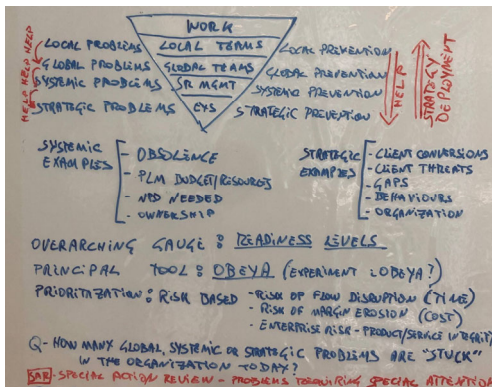 WORK
LOCAL PROBLEMS LOCAL TEAMS LOCAL PREVENTION
GLOBAL PROBLEMS GLOBAL TEAMS GLOBAL PREVENTION
SYSTEMIC PROBLEMS SR MGMT SYSTEMIC PREVENTION
STRATEGIC PROBLEMS STRATEGIC PREVENTION
HELP HELP HELP
HELP
STRATEGY
DEPLOYMENT
SYSTEMIC
EXAMPLES
- OBSOLENCE
- PLM BUDGET/RESOURCES
- NPD NEEDED
- OWNERSHIP
STRATEGIC
EXAMPLES
- CLIENT CONVERSIONS
- CLIENT THREATS
- GAPS
- BEHAVIOURS
- ORGANIZATION
OVERARCHING GAUGE: READINESS LEVELS
PRINCIPAL TOOL: OBEYA (EXPERIMENT LOBEYA?)
PRIORITIZATION: RISK BASED - RISK OF FLOW DISRUPTION (TIME)
- RISK OF MARGIN EROSION (COST)
- ENTERPRISE RISK - PRODUCT/SERVICE INTEGRITY
Q - HOW MANY GLOBAL, SYSTEMIC OR STRATEGIC PROBLEMS ARE "STUCK"
IN THE ORGANIZATION TODAY?
SAR - SPECIAL ACTION REVIEW - PROBLEMS REQUIRING SPECIAL ATTENTION